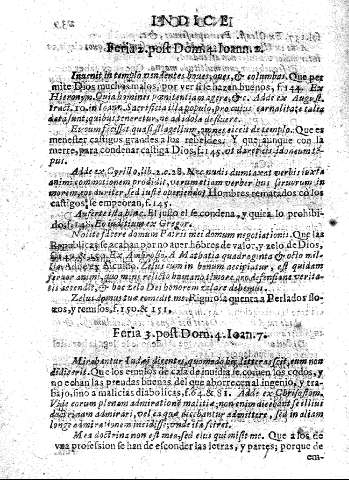 INDICE
Feria 2. post Dom. 4. Ioann. 2.
Inuenit in templo vendentes boues, oues, & columbas. Que per
mite Dios muchos malos, por ver si se hazen buenos, f. 144. Ex
Hieronym. Quia homines pœnitentiam agere, &c. Adde ex August.
tract. 10. in Ioann. Sacrificia illa populo, pro eius carnalitate talia
data sunt, quibus teneretur, ne ad idola deflueret.
Et cum fecisset quasi flagellum, omnes eiecit de templo. Que es
menester castigos grandes a los rebeldes. Y que aunque con la
muerte, para condenar castiga Dios, f. 145.
Adde ex Cyrillo, lib. 2. c. 28. Nec nudis dumtaxat verbis iusta
animi commotionem prodidit, verum etiam verber hus seruorum in
morem Hombres rematados cō los
castigos se empeoran, f. 145.
Auferte ista hinc. El justo el se condena, y quita lo prohibi-
do, f. 148. ex Gregor.
Nolite facere domum Patris mei domum negotiationis. Que las
Republicas se acaban por no auer hōbres de valor, y zelo de Dios,
f. 149. & 150. Ex Ambrosio. A Mathatia quadraginta & octo mil-
lia. Adde ex Nicolao. Zelus cum in bonum accipiatur, est quidam
feruor animi, quo mens relicto humano timore, pro defensione veri-
tatis accendit, & hoc zelo Dei honorem zelare debemus.
Zelus domus tuæ comedit me. Riguro&#x17F;a quenta a Perlados flo
xos, y remisos, f. 150. & 151.
Feria 3. post Dom. 4. Ioan. 7.
Mirabantur Iudæi dicentes, quomodo hic litteras scit, cum non
didicerit. Que los enojos de cala de inuidia se comen los codos, y
no echan las prendas buenas del que aborrecen al ingenio, y tra-
bajo, sino a malicias diabolicas, f. 64. & 81. Adde ex Chrisostom.
Vide eorum plenam admirationē malitia: non enim dicebant se illius
doctrinam admirari, vel ea quæ dicebantur admittere, sed in aliam
longe admirationem incidisse; vnde ista sciret.
Mea doctrina non est mea, sed eius qui misit me. Que a los de
vna profession se han de esconder las letras, y partes; porque de
em-